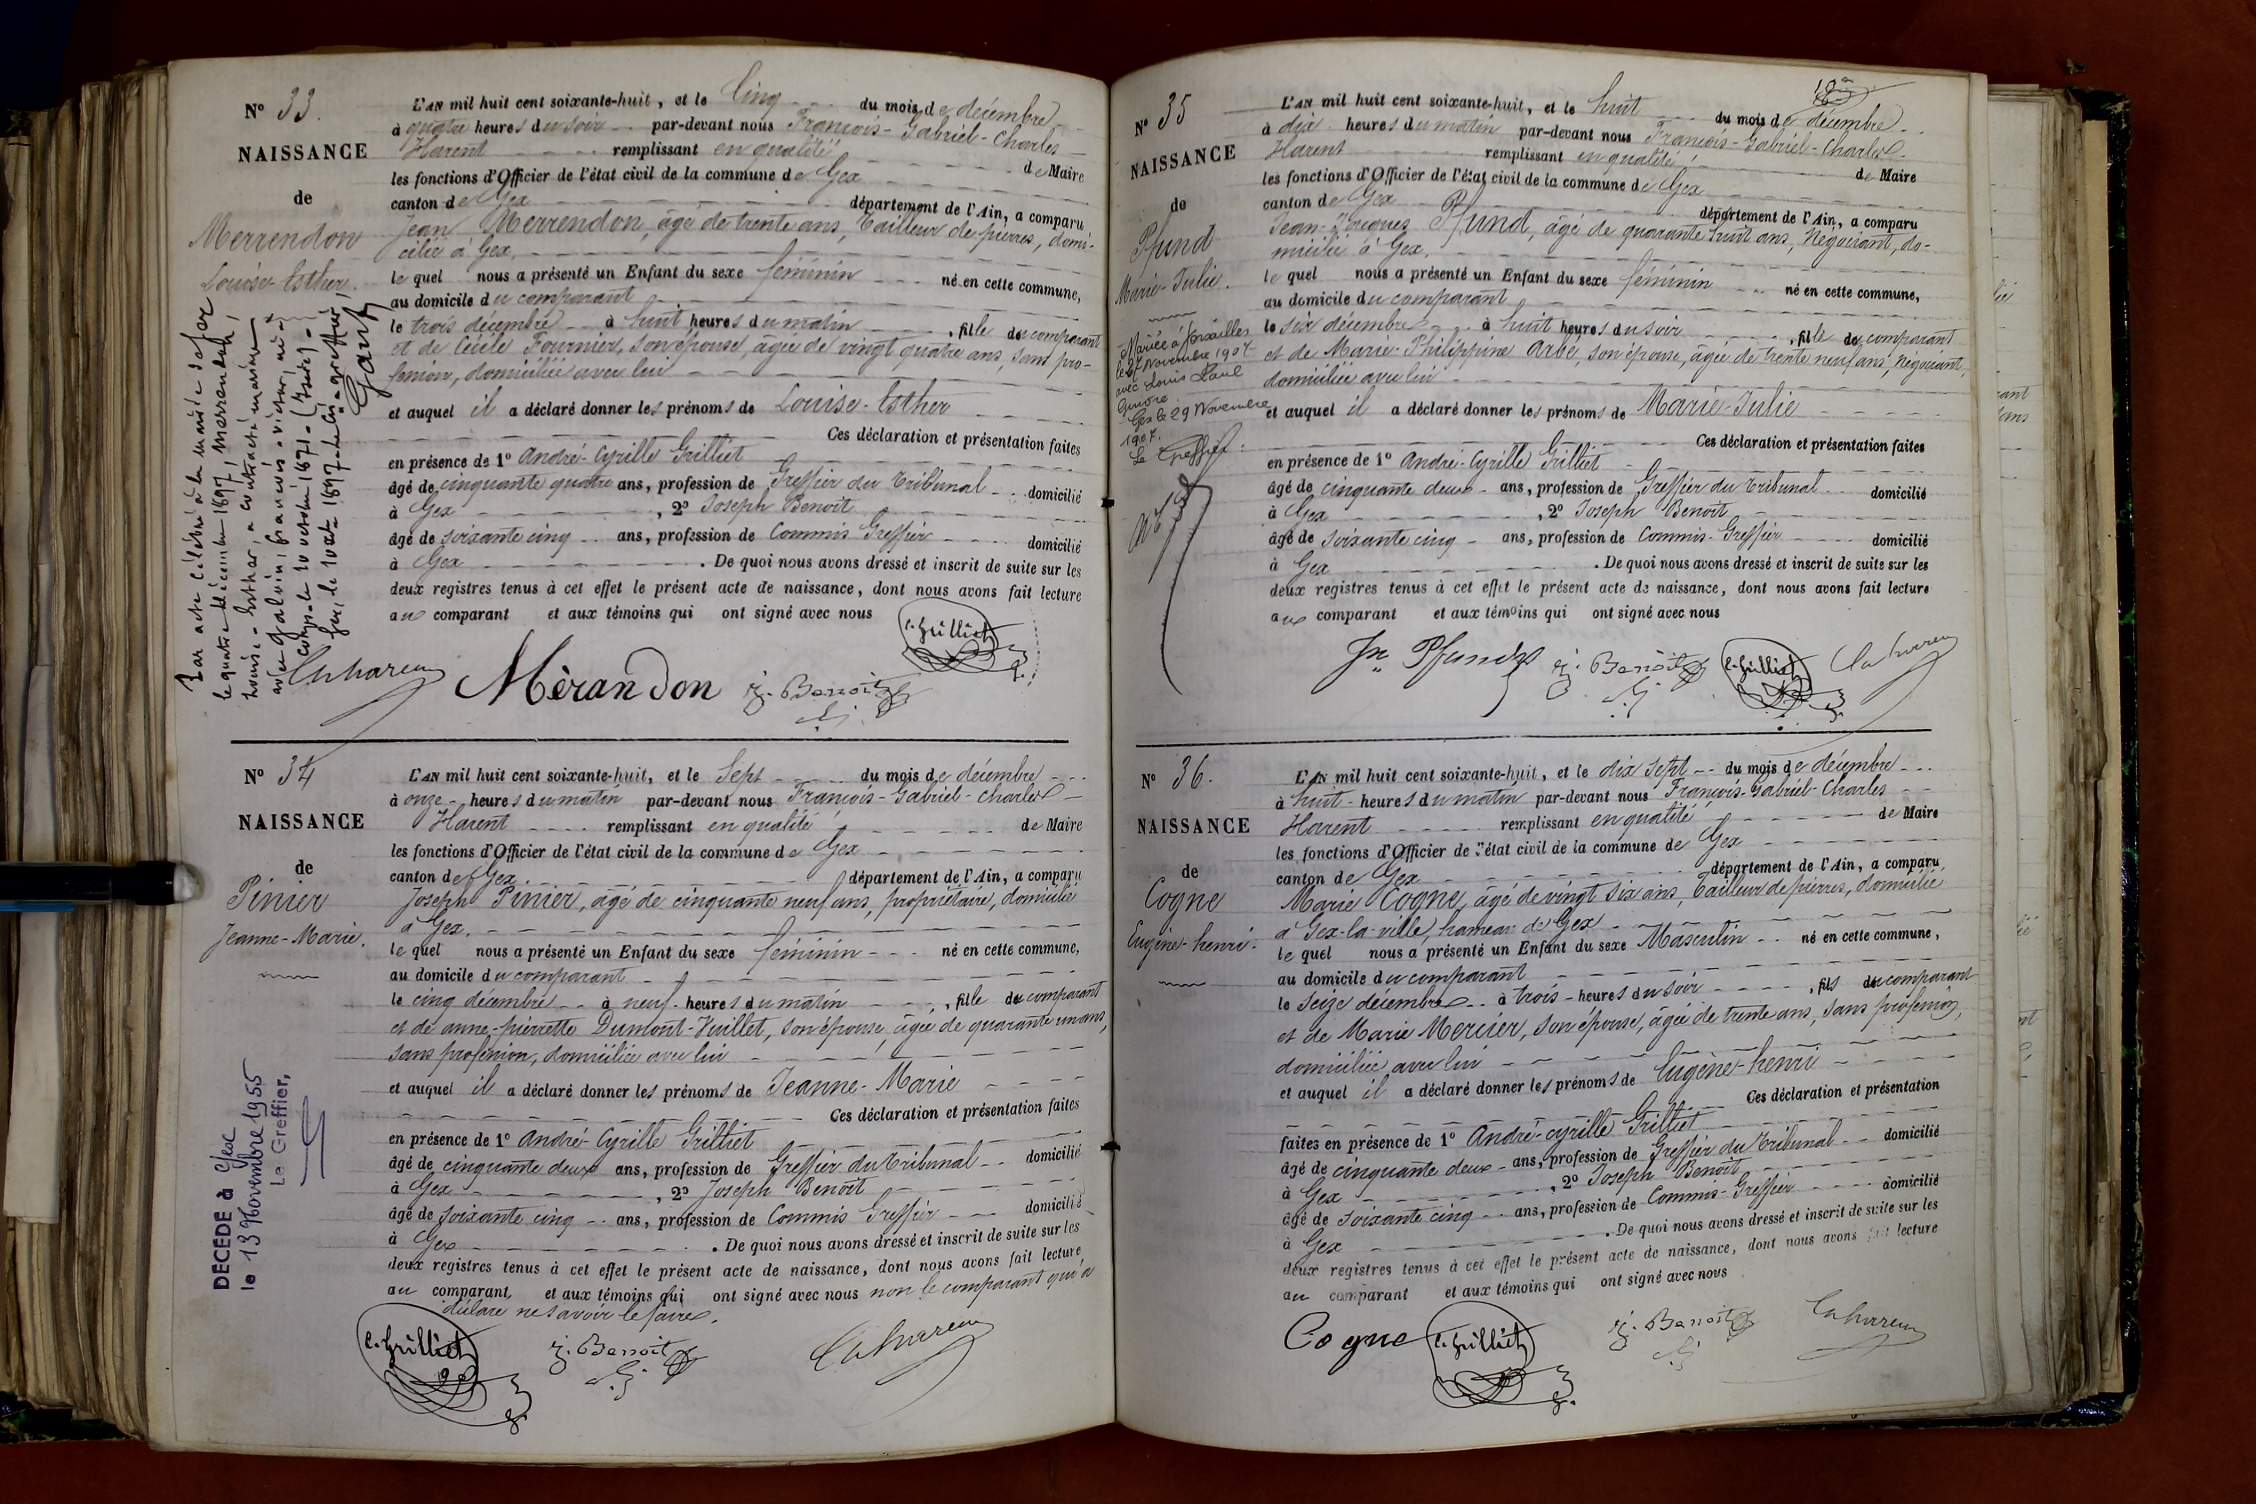 N° 33.
NAISSANCE
de
Merrendon
Louise-Esther.
L'AN mil huit cent soixante-huit, et le Cinq du mois de décembre
à quatre heures du soir par-devant nous François-Gabriel-Charles
Harent remplissant en qualité de Maire
les fonctions d'Officier de l'état civil de la commune de Gex
canton de Gex département de l'Ain, a comparu
Jean Merrendon, âgé de trente ans, Tailleur de pierres, domi-
cilié à Gex,
le quel nous a présenté un Enfant du sexe féminin né en cette commune,
au domicile du comparant
le trois décembre à huit heures du matin, fille du comparant
et de Cécile Fournier, son épouse, âgée de vingt quatre ans, sans pro-
fession, domiciliée avec lui
et auquel il a déclaré donner les prénoms de Louise-Esther
Ces déclaration et présentation faites
en présence de 1° André-Cyrille Grilliet
âgé de cinquante quatre ans, profession de Greffier du Tribunal domicilié
à Gex, 2° Joseph Benoît
âgé de soixante cinq ans, profession de Commis Greffier domicilié
à Gex. De quoi nous avons dressé et inscrit de suite sur les
deux registres tenus à cet effet le présent acte de naissance, dont nous avons fait lecture
aux comparant et aux témoins qui ont signé avec nous
Par acte célébré à la mairie de Gex
le quatre décembre 1897, Merrendon,
Louise-Esther, a contracté mariage
avec Galvini François-Victor, né à
le 10 octobre 1871
Gex, le
greffier,
C. Grilliet
Mèrandon
J. Benoit
N° 34
NAISSANCE
de
Pinier
Jeanne-Marie.
L'AN mil huit cent soixante-huit, et le Sept du mois de décembre
à onze heures du matin par-devant nous François-Gabriel-Charles
Harent remplissant en qualité de Maire
les fonctions d'Officier de l'état civil de la commune de Gex
canton de Gex département de l'Ain, a comparu
Joseph Pinier, âgé de cinquante neuf ans, propriétaire, domicilié
à Gex,
le quel nous a présenté un Enfant du sexe féminin né en cette commune,
au domicile du comparant
le cinq décembre à neuf heures du matin, fille du comparant
et de anne-pierrette Dumont-Vuillet, son épouse, âgée de quarante un ans,
sans profession, domiciliée avec lui
et auquel il a déclaré donner les prénoms de Jeanne-Marie
Ces déclaration et présentation faites
en présence de 1° André-Cyrille Grilliet
âgé de cinquante deux ans, profession de Greffier du Tribunal domicilié
à Gex, 2° Joseph Benoît
âgé de soixante cinq ans, profession de Commis Greffier domicilié
à Gex. De quoi nous avons dressé et inscrit de suite sur les
deux registres tenus à cet effet le présent acte de naissance, dont nous avons fait lecture
au comparant et aux témoins qui ont signé avec nous non le comparant qui a
déclaré ne savoir le faire.
DÉCÉDÉ à Gex
le 13 Novembre 1955
Le Greffier,
C. Grilliet
J. Benoit
N° 35
NAISSANCE
de
Pfund
Marie-Julie.
L'AN mil huit cent soixante-huit, et le huit du mois de décembre
à dix heures du matin par-devant nous François-Gabriel-Charles
Harent remplissant en qualité de Maire
les fonctions d'Officier de l'état civil de la commune de Gex
canton de Gex département de l'Ain, a comparu
Jean-Jacques Pfund, âgé de quarante huit ans, Négociant, do-
micilié à Gex,
le quel nous a présenté un Enfant du sexe féminin né en cette commune,
au domicile du comparant
le six décembre à huit heures du soir, fille du comparant
et de Marie-Philippine Arbé, son épouse, âgée de trente neuf ans, négociant,
domiciliée avec lui
et auquel il a déclaré donner les prénoms de Marie-Julie
Ces déclaration et présentation faites
en présence de 1° André-Cyrille Grilliet
âgé de cinquante deux ans, profession de Greffier du Tribunal domicilié
à Gex, 2° Joseph Benoît
âgé de soixante cinq ans, profession de Commis-Greffier domicilié
à Gex. De quoi nous avons dressé et inscrit de suite sur les
deux registres tenus à cet effet le présent acte de naissance, dont nous avons fait lecture
aux comparant et aux témoins qui ont signé avec nous
Mariée à Versailles
le 21 Novembre 1907
avec Louis Paul
Gex le 29 Novembre
1907.
Le Greffier:
Jn Pfund
J. Benoit
C. Grilliet
N° 36.
NAISSANCE
de
Cogne
Eugène-henri.
L'AN mil huit cent soixante-huit, et le dix sept du mois de décembre
à huit heures du matin par-devant nous François-Gabriel-Charles
Harent remplissant en qualité de Maire
les fonctions d'Officier de l'état civil de la commune de Gex
canton de Gex département de l'Ain, a comparu
Marie Cogne, âgé de vingt six ans, Tailleur de pierres, domicilié
à Gex-la-ville, hameau de Gex
le quel nous a présenté un Enfant du sexe Masculin né en cette commune,
au domicile du comparant
le Seize décembre à trois heures du soir, fils du comparant
et de Marie Mercier, son épouse, âgée de trente ans, sans profession,
domiciliée avec lui
et auquel il a déclaré donner les prénoms de Eugène-henri
Ces déclaration et présentation
faites en présence de 1° André-cyrille Grilliet
âgé de cinquante deux ans, profession de Greffier du Tribunal domicilié
à Gex, 2° Joseph Benoît
âgé de soixante cinq ans, profession de Commis-Greffier domicilié
à Gex. De quoi nous avons dressé et inscrit de suite sur les
deux registres tenus à cet effet le présent acte de naissance, dont nous avons fait lecture
au comparant et aux témoins qui ont signé avec nous
Cogne
C. Grilliet
J. Benoit